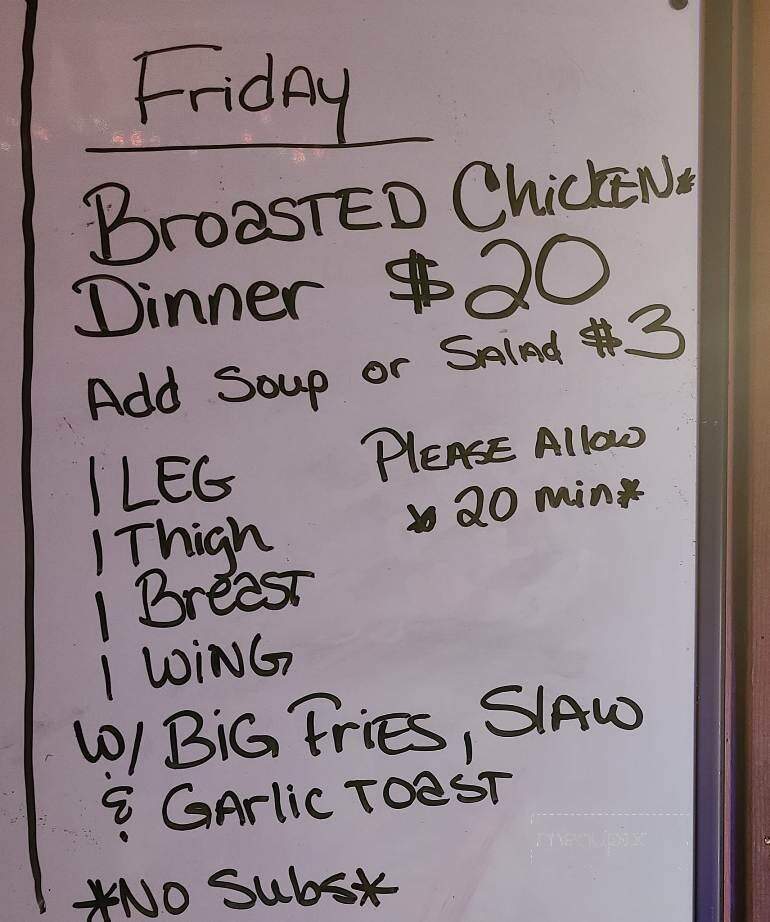 FridAy
BroasTED ChickEN*
Dinner $20
Add Soup or SAlAd $3
PLEASE Allow
* 20 min*
1 LEG
1 Thigh
1 BreasT
1 WiNG
W/ BiG FriES, SlAW
& GArlic ToasT
*No Subs*
menupix